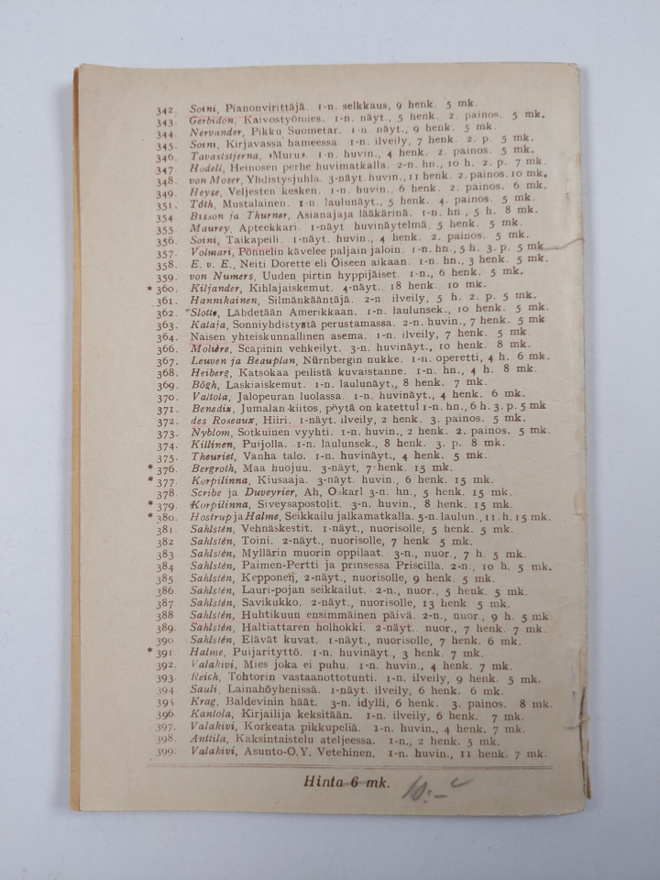 342. Soini, Pianonvirittäjä. 1-n. selkkaus, 9 henk. 5 mk.
343. Gerbidon, Kaivostyömies. 1-n. näyt., 5 henk. 2. painos. 5 mk.
344. Nervander, Pikku Suometar. 1-n. näyt., 9 henk. 5 mk.
345. Soini, Kirjavassa hameessa. 1-n. ilveily, 7 henk. 2. p. 5 mk.
346. Tavaststjerna, »Muru». 1-n. huvin., 4 henk. 2. painos. 5 mk.
347. Hodell, Heinosen perhe huvimatkalla. 2-n. hn., 10 h. 2. p. 7 mk.
348. von Moser, Yhdistysjuhla. 3-näyt. huvin., 11 henk. 2. painos. 10 mk.
349. Heyse, Veljesten kesken. 1-n. huvin., 6 henk. 2. painos. 6 mk.
351. Tóth, Mustalainen. 1-n. laulunäyt., 5 henk. 4. painos. 5 mk.
354. Bisson ja Thurner, Asianajaja lääkärinä. 1-n. hn., 5 h. 8 mk.
355. Maurey, Apteekkari. 1-näyt. huvinäytelmä, 5 henk. 5 mk.
356. Soini, Taikapeili. 1-näyt. huvin., 4 henk. 2. painos. 5 mk.
357. Voimari, Pönnelin kävelee paljain jaloin. 1-n. hn., 5 h. 3. p. 5 mk
358. E. v. E., Neiti Dorette eli Öiseen aikaan. 1-n. hn., 3 henk. 5 mk.
359. von Numers, Uuden pirtin hyppijäiset. 1-n., 6 henk. 5 mk.
* 360. Kiljander, Kihlajaiskemut. 4-näyt.. 18 henk. 10 mk.
361. Hannikainen, Silmänkääntäjä. 2-n. ilveily, 5 h. 2. p. 5 mk.
362. Slotte, Lähdetään Amerikkaan. 1-n. laulunsek., 10 henk. 5 mk.
363. Kataja, Sonniyhdistystä perustamassa. 2-n. huvin., 7 henk. 5 mk
364. Naisen yhteiskunnallinen asema. 1-n. ilveily, 7 henk. 5 mk.
366. Molière, Scapinin vehkeilyt. 3-n. huvinäyt., 10 henk. 8 mk.
367. Leuven ja Beauplan, Nürnbergin nukke. 1-n. operetti, 4 h. 6 mk.
368. Heiberg, Katsokaa peilistä kuvaistanne. 1-n. hn., 4 h. 8 mk.
369. Bögh, Laskiaiskemut. 1-n. laulunäyt., 8 henk. 7 mk.
370. Valtola, Jalopeuran luolassa. 1-n. huvinäyt., 4 henk. 6 mk.
371. Benedix, Jumalan kiitos, pöytä on katettu! 1-n. hn., 6 h. 3. p. 5 mk
372. des Roseaux, Hiiri. 1-näyt. ilveily, 2 henk. 3. painos. 5 mk.
373. Nyblom, Sotkuinen vyyhti. 1-n. huvin., 2 henk. 2. painos. 5 mk.
374. Killinen, Puijolla. 1-n. laulunsek., 8 henk. 3. p. 8 mk.
375. Theuriet, Vanha talo. 1-n. huvinäyt., 4 henk. 5 mk.
* 376. Bergroth, Maa huojuu. 3-näyt, 7 henk. 15 mk.
* 377. Korpilinna, Kiusaaja. 3-näyt. huvin., 6 henk. 15 mk.
378. Scribe ja Duveyrier, Ah, Oskar! 3-n. hn., 5 henk. 15 mk.
* 379. Korpilinna, Siveysapostolit. 3-n. huvin., 8 henk. 15 mk.
* 380. Hostrup ja Halme, Seikkailu jalkamatkalla. 5-n. laulun., 11. h. 15 mk.
381. Sahlstén, Vehnäskestit. 1-näyt., nuorisolle, 5 henk. 5 mk.
382 Sahlstén, Toini. 2-näyt., nuorisolle, 7 henk. 5 mk.
383. Sahlstén, Myllärin muorin oppilaat. 3-n., nuor., 7 h. 5 mk.
384 Sahlstén, Paimen-Pertti ja prinsessa Priscilla. 2-n., 10 h. 5 mk.
385. Sahlstén, Kepponen, 2-näyt., nuorisolle, 9 henk. 5 mk.
386. Sahlstén, Lauri-pojan seikkailut. 2-n., nuor., 5 henk. 5 mk.
387 Sahlstén, Savikukko. 2-näyt., nuorisolle, 13 henk. 5 mk.
388 Sahlstén, Huhtikuun ensimmäinen päivä. 2-n., nuor., 9 h. 5 mk
389. Sahlstén, Haltiattaren holhokki. 2-näyt.. nuor., 7 henk. 7 mk.
390 Sahlstén, Elävät kuvat. 1-näyt., nuorisolle, 7 henk. 6 mk.
* 391 Halme, Puijarityttö. 1-n. huvinäyt., 3 henk. 7 mk.
392. Valakivi, Mies joka ei puhu. 1-n. huvin., 4 henk. 7 mk.
393 Reich, Tohtorin vastaanottotunti. 1-n. ilveily, 9 henk. 5 mk.
394 Sauli, Lainahöyhenissä. 1-näyt. ilveily, 6 henk. 6 mk.
395 Krag, Baldevinin häät. 3-n. idylli, 6 henk. 3. painos. 8 mk.
396. Kantola, Kirjailija keksitään. 1-n. ilveily, 6 henk. 7 mk.
397. Valakivi, Korkeata pikkupeliä. 1-n. huvin., 4 henk. 7 mk.
398. Anttila, Kaksintaistelu ateljeessa. 1-n., 2 henk. 5 mk.
399. Valakivi, Asunto-O.Y. Vetehinen. 1-n. huvin., 11 henk. 7 mk.
Hinta 6 mk. 10:-